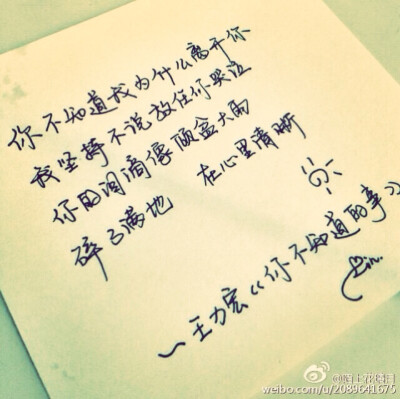 你不知道我为什么离开你
我坚持不说放任你哭泣
你的泪滴像倾盆大雨
碎了满地 在心里清晰
—王力宏《你不知道的事》
weibo.com/u/2089641675